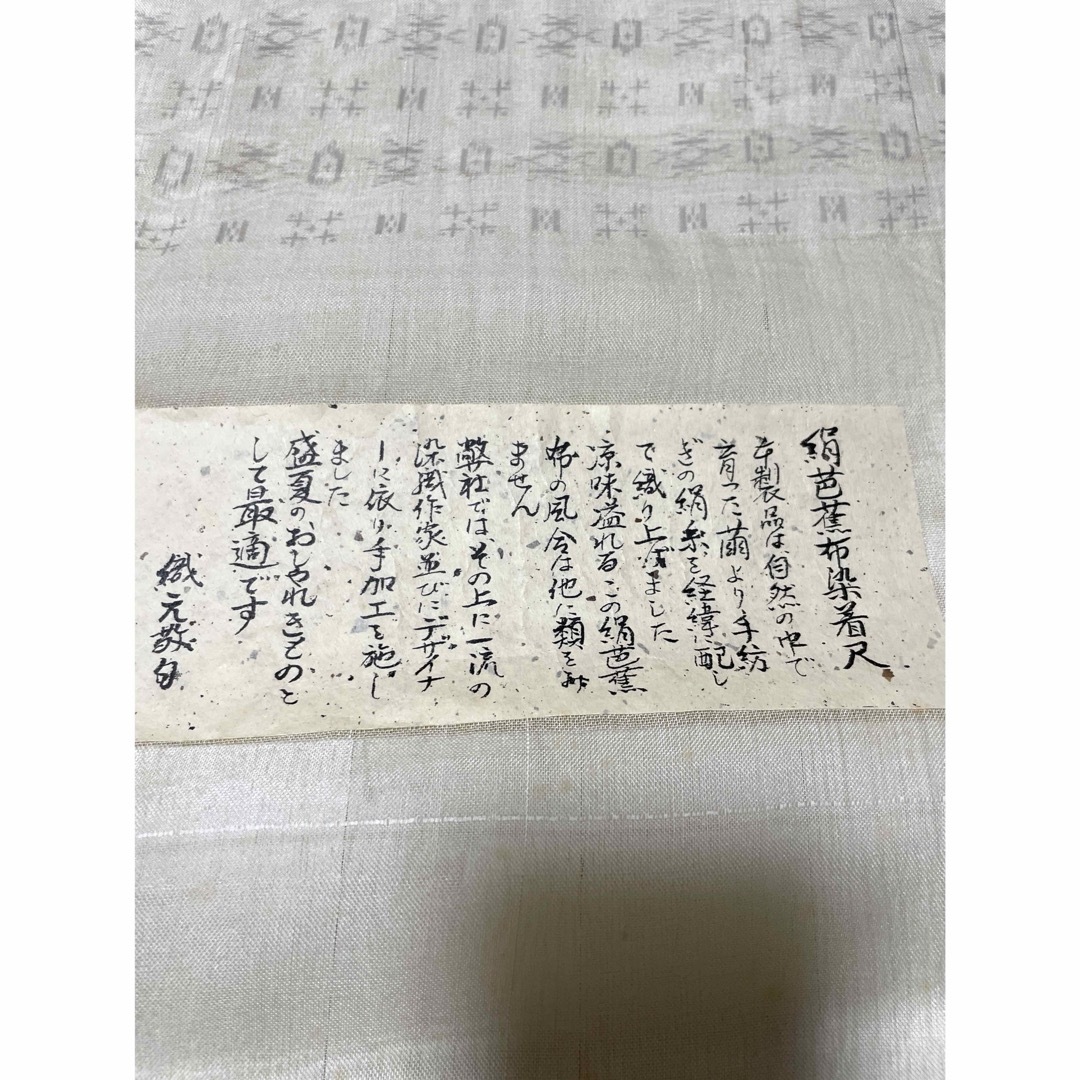 絹芭蕉布染着尺
本製品は、自然の中で
育った繭より手紡
ぎの絹糸を経緯に配し
て織り上げました
涼味溢れるこの絹芭蕉
布の風合は他に類を
ません
弊社では、その上に一流の
染織作家並びにデザイナ
ーに依り手加工を施し
ました
盛夏のおしゃれきものと
して最適です
織元敬白